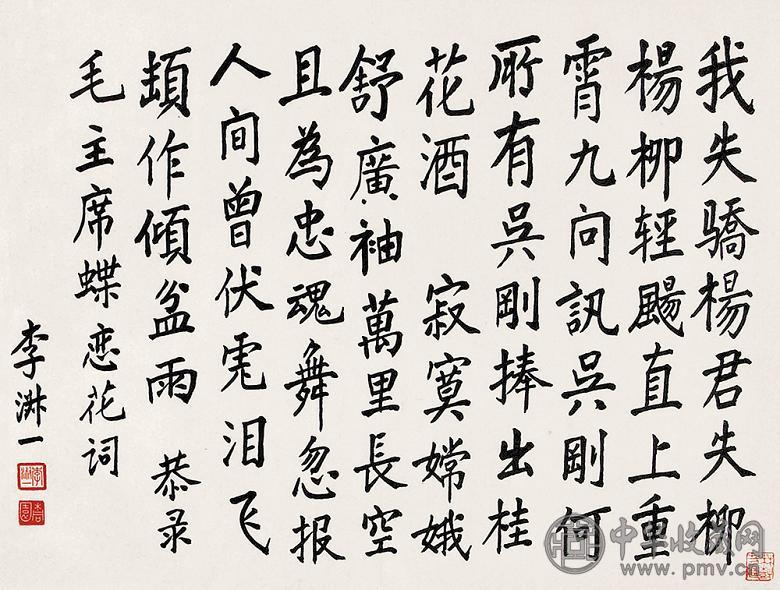 我失驕楊君失柳
楊柳輕颺直上重
霄九问訊吳剛何
所有吳剛捧出桂
花酒 寂寞嫦娥
舒廣袖萬里長空
且為忠魂舞忽报
人间曾伏虎泪飞
頓作傾盆雨 恭录
毛主席蝶恋花词
李淑一
中华收藏网
www.pmv.cn